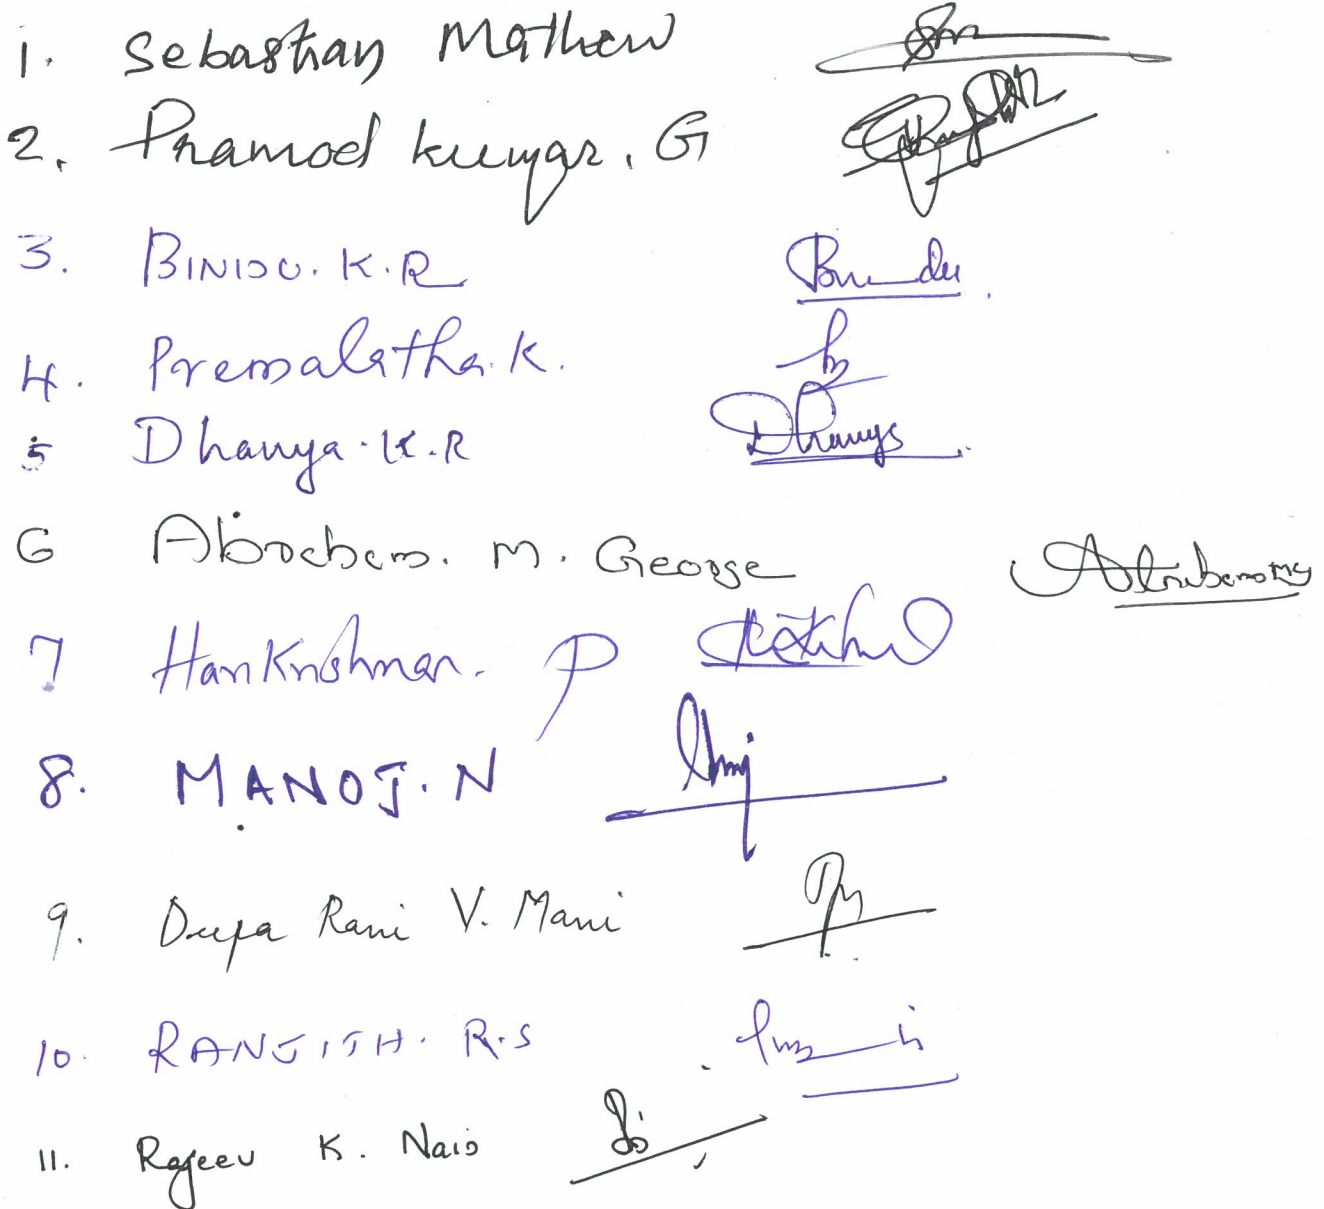 1. Sebastian Mathew
2. Pramod kumar. G
3. BINDU. K. R Bindu
4. Premalatha. K.
5 Dhanya. K. R Dhanya
6 Abraham. M. George
7 Harikrishnan. P
8. MANOJ. N
9. Deepa Rani V. Mani
10. RANJITH. R. S
11. Rajeev K. Nair